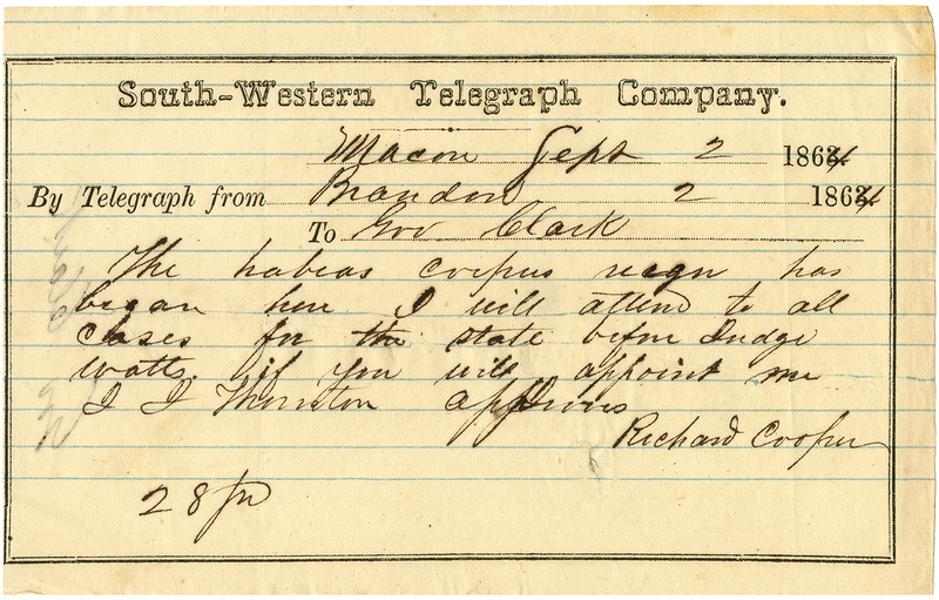 South-Western Telegraph Company.
Macon Sept 2 1864
By Telegraph from Brandon 2 1864
To Gov Clark
The habeas corpus reign has
began here I will attend to all
cases for the state before Judge
watts. if you will appoint me
J J Thornton approves
Richard Cooper
28